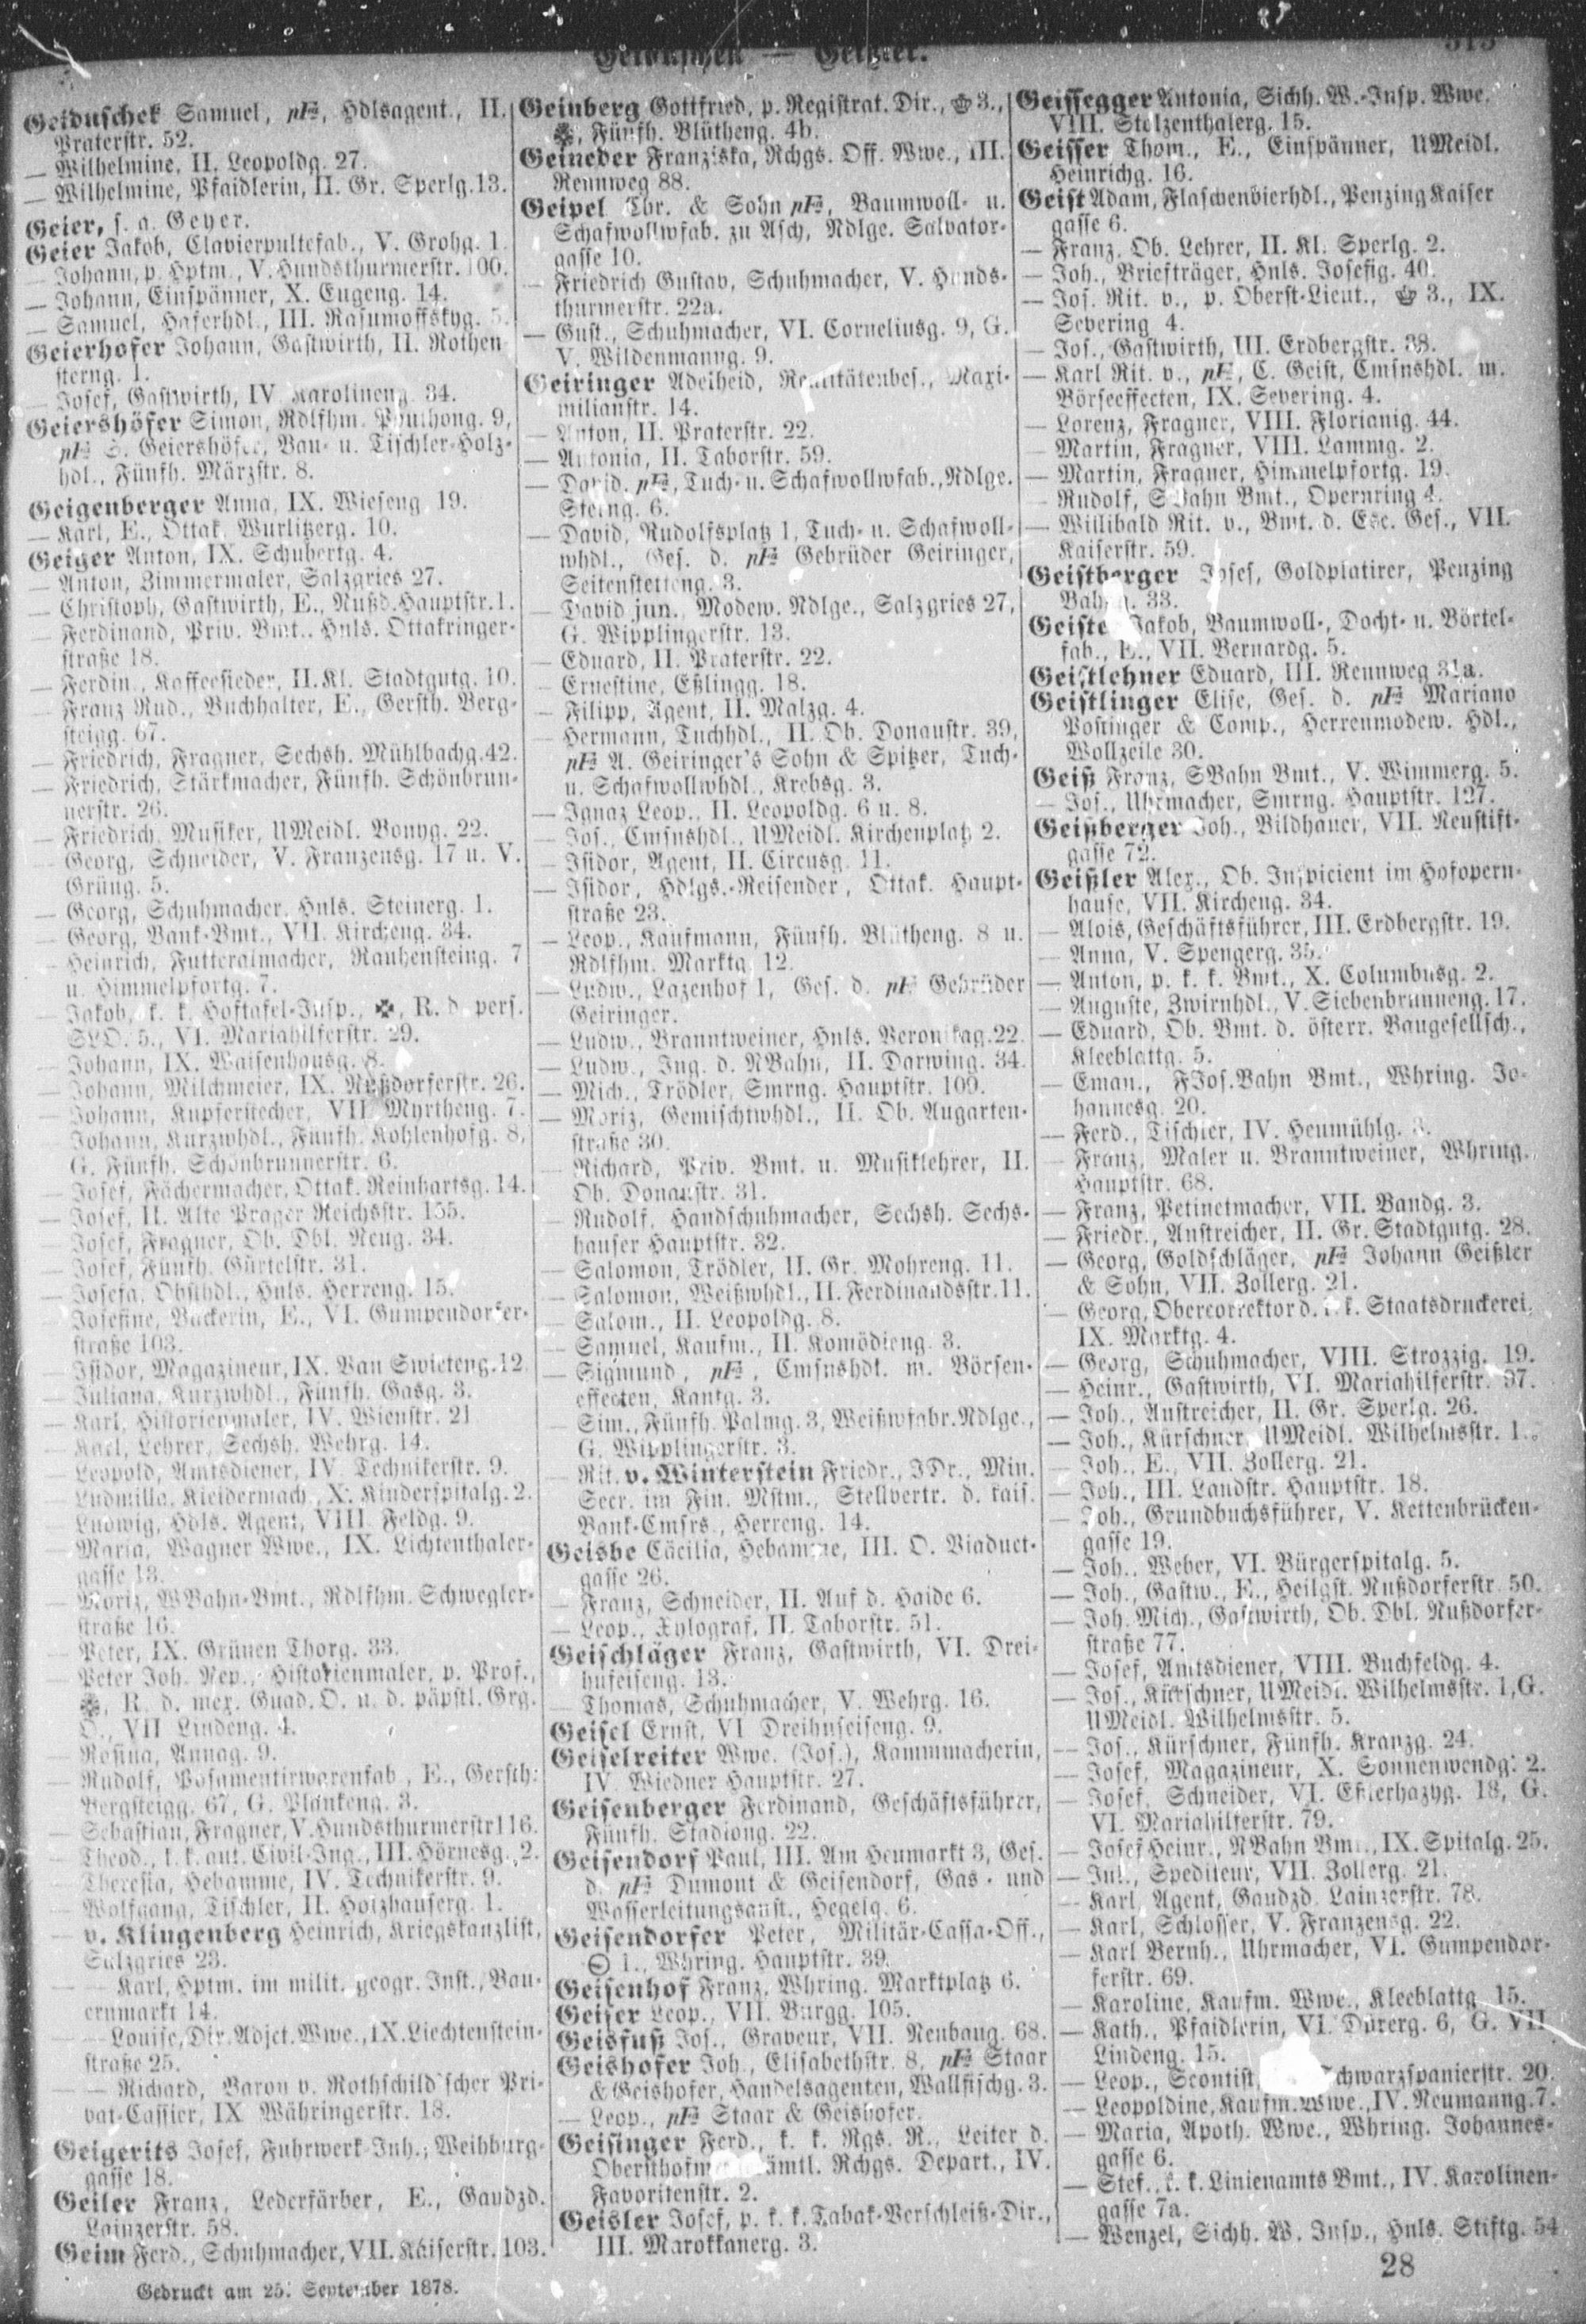 Geiduschek — Geißler.
Geiduschek Samuel, pFa, Hdlsagent., II.
Praterstr. 52.
— Wilhelmine, II. Leopoldg. 27.
— Wilhelmine, Pfaidlerin, II. Gr. Sperlg. 13.
Geier, s. a. Geyer.
Geier Jakob, Clavierpultefab., V. Grohg. 1.
— Johann, p. Hptm., V. Hundsthurmerstr. 100.
— Johann, Einspänner, X. Eugeng. 14.
— Samuel, Haferhdl., III. Rasumoffskyg. 5.
Geierhofer Johann, Gastwirth, II. Rothen
sterng. 1.
— Josef, Gastwirth, IV. Karolineng. 34.
Geiershöfer Simon, Rdlfhm. 9,
pFa S. Geiershöfer, Bau- u. Tischler-Holz-
hdl., Fünfh. Märzstr. 8.
Geigenberger Anna, IX. Wieseng. 19.
— Karl, E., Ottak. Wurlitzerg. 10.
Geiger Anton, IX. Schubertg. 4.
— Anton, Zimmermaler, Salzgries 27.
— Christoph, Gastwirth, E., Nußd. Hauptstr. 1.
— Ferdinand, Priv. Bmt., Hnls. Ottakringer-
straße 18.
— Ferdin., Kaffeesieder, II. Kl. Stadtgutg. 10.
— Franz Rud., Buchhalter, E., Gersth. Berg-
steigg. 67.
— Friedrich, Fragner, Sechsh. Mühlbachg. 42.
— Friedrich, Stärkmacher, Fünfh. Schönbrun-
nerstr. 26.
— Friedrich, Musiker, UMeidl. Bonyg. 22.
— Georg, Schneider, V. Franzensg. 17 u. V.
Grüng. 5.
— Georg, Schuhmacher, Hnls. Steinerg. 1.
— Georg, Bank-Bmt., VII. Kircheng. 34.
— Heinrich, Futteralmacher, Rauhensteing. 7
u. Himmelpfortg. 7.
— Jakob, k. k. Hoftafel-Insp., ✠, R. d. pers.
SLO. 5., VI. Mariahilferstr. 29.
— Johann, IX. Waisenhausg. 8.
— Johann, Milchmeier, IX. Nußdorferstr. 26.
— Johann, Kupferstecher, VII. Myrtheng. 7.
— Johann, Kurzwhdl., Fünfh. Kohlenhofg. 8,
G. Fünfh. Schönbrunnerstr. 6.
— Josef, Fächermacher, Ottak. Reinhartsg. 14.
— Josef, II. Alte Prager Reichsstr. 155.
— Josef, Fragner, Ob. Dbl. Neug. 34.
— Josef, Fünfh. Gürtelstr. 31.
— Josefa, Obsthdl., Hnls. Herreng. 15.
— Josefine, Bäckerin, E., VI. Gumpendorfer-
straße 103.
— Isidor, Magazineur, IX. Van Swieteng. 12.
— Juliana, Kurzwhdl., Fünfh. Gasg. 3.
— Karl, Historienmaler, IV. Wienstr. 21.
— Karl, Lehrer, Sechsh. Wehrg. 14.
— Leopold, Amtsdiener, IV. Technikerstr. 9.
— Ludmilla, Kleidermach., X. Kinderspitalg. 2.
— Ludwig, Hdls. Agent, VIII. Feldg. 9.
— Maria, Wagner Wwe., IX. Lichtenthaler-
gasse 13.
— Moriz, WBahn-Bmt., Rdlfhm. Schwegler-
straße 16.
— Peter, IX. Grünen Thorg. 33.
— Peter Joh. Nep., Historienmaler, p. Prof.,
R. d. mex. Guad. O. u. d. päpstl. Grg.
O., VII. Lindeng. 4.
— Rosina, Annag. 9.
— Rudolf, Posamentirwarenfab., E., Gersth.
Bergsteigg. 67, G. Plankeng. 3.
— Sebastian, Fragner, V. Hundsthurmerstr 116.
— Theod., k. k. aut. Civil-Ing., III. Hörnesg. 2.
— Theresia, Hebamme, IV. Technikerstr. 9.
— Wolfgang, Tischler, II. Holzhauserg. 1.
— v. Klingenberg Heinrich, Kriegskanzlist,
Salzgries 23.
— — Karl, Hptm. im milit. geogr. Inst., Bau-
ernmarkt 14.
— — Louise, Dir. Adjct. Wwe., IX. Liechtenstein-
straße 25.
— — Richard, Baron v. Rothschild'scher Pri-
vat-Cassier, IX. Währingerstr. 18.
Geigerits Josef, Fuhrwerk-Inh., Weihburg-
gasse 18.
Geiler Franz, Lederfärber, E., Gaudzd.
Lainzerstr. 58.
Geim Ferd., Schuhmacher, VII. Kaiserstr. 103.
Gedruckt am 25. September 1878.
Geinberg Gottfried, p. Registrat. Dir., 3.,
Fünfh. Blütheng. 4b.
Geineder Franziska, Rchgs. Off. Wwe., III.
Rennweg 88.
Geipel Chr. & Sohn pFa, Baumwoll- u.
Schafwollwfab. zu Asch, Ndlge. Salvator-
gasse 10.
— Friedrich Gustav, Schuhmacher, V. Hunds-
thurmerstr. 22a.
— Gust., Schuhmacher, VI. Corneliusg. 9, G.
V. Wildenmanng. 9.
Geiringer Adelheid, Realitätenbes., Maxi-
milianstr. 14.
— Anton, II. Praterstr. 22.
— Antonia, II. Taborstr. 59.
— David, pFa, Tuch- u. Schafwollwfab., Ndlge.
Sterng. 6.
— David, Rudolfsplatz 1, Tuch- u. Schafwoll-
whdl., Ges. d. pFa Gebrüder Geiringer,
Seitenstetteng. 3.
— David jun., Modew. Ndlge., Salzgries 27,
G. Wipplingerstr. 13.
— Eduard, II. Praterstr. 22.
— Ernestine, Eßlingg. 18.
— Filipp, Agent, II. Malzg. 4.
— Hermann, Tuchhdl., II. Ob. Donaustr. 39,
pFa A. Geiringer's Sohn & Spitzer, Tuch-
u. Schafwollwhdl., Krebsg. 3.
— Ignaz Leop., II. Leopoldg. 6 u. 8.
— Jos., Cmsnshdl., UMeidl. Kirchenplatz 2.
— Isidor, Agent, II. Circusg. 11.
— Isidor, Hdlgs.-Reisender, Ottak. Haupt-
straße 23.
— Leop., Kaufmann, Fünfh. Blütheng. 8 u.
Rdlfhm. Marktg. 12.
— Ludw., Lazenhof 1, Ges. d. pFa Gebrüder
Geiringer.
— Ludw., Branntweiner, Hnls. Veronikag. 22.
— Ludw., Ing. d. NBahn, II. Darwing. 34.
— Mich., Trödler, Smrng. Hauptstr. 109.
— Moriz, Gemischtwhdl., II. Ob. Augarten-
straße 30.
— Richard, Priv. Bmt. u. Musiklehrer, II.
Ob. Donaustr. 31.
— Rudolf, Handschuhmacher, Sechsh. Sechs-
hauser Hauptstr. 32.
— Salomon, Trödler, II. Gr. Mohreng. 11.
— Salomon, Weißwhdl., II. Ferdinandsstr. 11.
— Salom., II. Leopoldg. 8.
— Samuel, Kaufm., II. Komödieng. 3.
— Sigmund, pFa, Cmsnshdl. m. Börsen-
effecten, Kantg. 3.
— Sim., Fünfh. Palmg. 3, Weißwfabr. Ndlge.,
G. Wipplingerstr. 3.
— Rit. v. Winterstein Friedr., JDr., Min.
Secr. im Fin. Mstm., Stellvertr. d. kais.
Bank-Cmsrs., Herreng. 14.
Geisbe Cäcilia, Hebamme, III. O. Viaduct-
gasse 26.
— Franz, Schneider, II. Auf d. Haide 6.
— Leop., Xylograf, II. Taborstr. 51.
Geischläger Franz, Gastwirth, VI. Drei-
hufeiseng. 13.
— Thomas, Schuhmacher, V. Wehrg. 16.
Geisel Ernst, VI. Dreihufeiseng. 9.
Geiselreiter Wwe. (Jos.), Kammmacherin,
IV. Wiedner Hauptstr. 27.
Geisenberger Ferdinand, Geschäftsführer,
Fünfh. Stadiong. 22.
Geisendorf Paul, III. Am Heumarkt 3, Ges.
d. pFa Dumont & Geisendorf, Gas- und
Wasserleitungsanst., Hegelg. 6.
Geisendorfer Peter, Militär-Cassa-Off.,
1., Whring. Hauptstr. 39.
Geisenhof Franz, Whring. Marktplatz 6.
Geiser Leop., VII. Burgg. 105.
Geisfuß Jos., Graveur, VII. Neubaug. 68.
Geishofer Joh., Elisabethstr. 8, pFa Staar
& Geishofer, Handelsagenten, Wallfischg. 3.
— Leop., pFa Staar & Geishofer.
Geisinger Ferd., k. k. Rgs. R., Leiter d.
Rchgs. Depart., IV.
Favoritenstr. 2.
Geisler Josef, p. k. k. Tabak-Verschleiß-Dir.,
III. Marokkanerg. 3.
Geissegger Antonia, Sichh. W.-Insp. Wwe.
VIII. Stolzenthalerg. 15.
Geisser Thom., E., Einspänner, UMeidl.
Heinrichg. 16.
Geist Adam, Flaschenbierhdl., Penzing Kaiser
gasse 6.
— Franz, Ob. Lehrer, II. Kl. Sperlg. 2.
— Joh., Briefträger, Hnls. Josefig. 40.
— Jos. Rit. v., p. Oberst-Lieut., 3., IX.
Severing. 4.
— Jos., Gastwirth, III. Erdbergstr. 38.
— Karl Rit. v., pFa, C. Geist, Cmsnshdl. m.
Börseeffecten, IX. Severing. 4.
— Lorenz, Fragner, VIII. Florianig. 44.
— Martin, Fragner, VIII. Lammg. 2.
— Martin, Fragner, Himmelpfortg. 19.
— Rudolf, SBahn Bmt., Opernring 4.
— Willibald Rit. v., Bmt. d. Esc. Ges., VII.
Kaiserstr. 59.
Geistberger Josef, Goldplatirer, Penzing
33.
Jakob, Baumwoll-, Docht- u. Börtel-
fab., E., VII. Bernardg. 5.
Geistlehner Eduard, III. Rennweg 31a.
Geistlinger Elise, Ges. d. pFa Mariano
Postinger & Comp., Herrenmodew. Hdl.,
Wollzeile 30.
Geiß Franz, SBahn Bmt., V. Wimmerg. 5.
— Jos., Uhrmacher, Smrng. Hauptstr. 127.
Geißberger Joh., Bildhauer, VII. Neustift-
gasse 72.
Geißler Alex., Ob. Inspicient im Hofopern-
hause, VII. Kircheng. 34.
— Alois, Geschäftsführer, III. Erdbergstr. 19.
— Anna, V. Spengerg. 35.
— Anton, p. k. k. Bmt., X. Columbusg. 2.
— Auguste, Zwirnhdl., V. Siebenbrunneng. 17.
— Eduard, Ob. Bmt. d. österr. Baugesellsch.,
Kleeblattg. 5.
— Eman., FJos.Bahn Bmt., Whring. Jo-
hannesg. 20.
— Ferd., Tischler, IV. Heumühlg. 3.
— Franz, Maler u. Branntweiner, Whring.
Hauptstr. 68.
— Franz, Petinetmacher, VII. Bandg. 3.
— Friedr., Anstreicher, II. Gr. Stadtgutg. 28.
— Georg, Goldschläger, pFa Johann Geißler
& Sohn, VII. Zollerg. 21.
— Georg, Obercorrektor d. k. k. Staatsdruckerei,
IX. Marktg. 4.
— Georg, Schuhmacher, VIII. Strozzig. 19.
— Heinr., Gastwirth, VI. Mariahilferstr. 97.
— Joh., Anstreicher, II. Gr. Sperlg. 26.
— Joh., Kürschner, UMeidl. Wilhelmsstr. 1.
— Joh., E., VII. Zollerg. 21.
— Joh., III. Landstr. Hauptstr. 18.
— Joh., Grundbuchsführer, V. Kettenbrücken-
gasse 19.
— Joh., Weber, VI. Bürgerspitalg. 5.
— Joh., Gastw., E., Heilgst. Nußdorferstr. 50.
— Joh. Mich., Gastwirth, Ob. Dbl. Nußdorfer-
straße 77.
— Josef, Amtsdiener, VIII. Buchfeldg. 4.
— Jos., Kürschner, UMeidl. Wilhelmsstr. 1, G.
UMeidl. Wilhelmsstr. 5.
— Jos., Kürschner, Fünfh. Kranzg. 24.
— Josef, Magazineur, X. Sonnenwendg. 2.
— Josef, Schneider, VI. Eßterhazyg. 18, G.
VI. Mariahilferstr. 79.
— Josef Heinr., NBahn Bmt., IX. Spitalg. 25.
— Jul., Spediteur, VII. Zollerg. 21.
— Karl, Agent, Gaudzd. Lainzerstr. 78.
— Karl, Schlosser, V. Franzensg. 22.
— Karl Bernh., Uhrmacher, VI. Gumpendor-
ferstr. 69.
— Karoline, Kaufm. Wwe., Kleeblattg. 15.
— Kath., Pfaidlerin, VI. Dürerg. 6, G. VII.
Lindeng. 15.
— Leop., Scontist, Schwarzspanierstr. 20.
— Leopoldine, Kaufm. Wwe., IV. Neumanng. 7.
— Maria, Apoth. Wwe., Whring. Johannes-
gasse 6.
— Stef., k. k. Linienamts Bmt., IV. Karolinen-
gasse 7a.
— Wenzel, Sichh. W. Insp., Hnls. Stiftg. 54
28